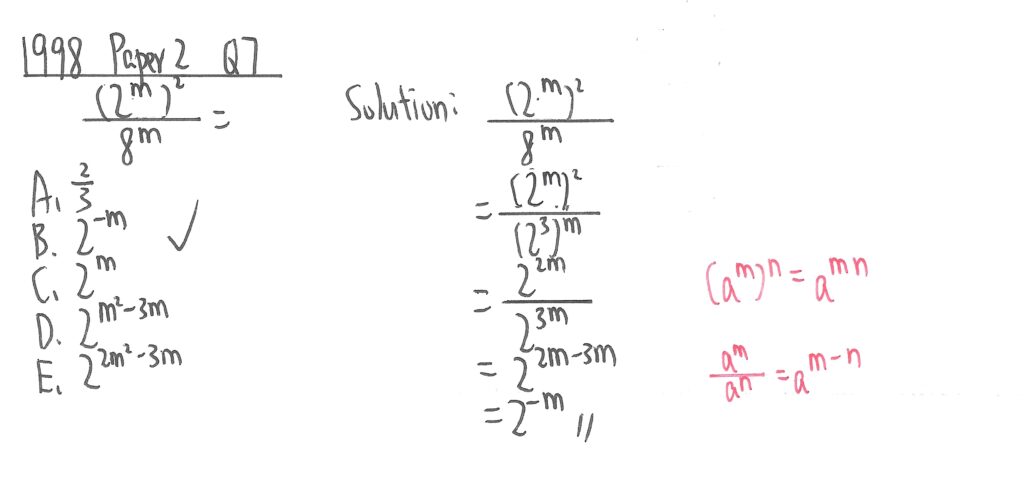 1998 Paper 2 Q7
(2^m)^2 / 8^m =
A. 2/3
B. 2^-m ✓
C. 2^m
D. 2^m²-3m
E. 2^2m²-3m
Solution: (2^m)^2 / 8^m
= (2^m)^2 / (2^3)^m
= 2^2m / 2^3m
= 2^2m-3m
= 2^-m //
(a^m)^n = a^mn
a^m / a^n = a^m-n